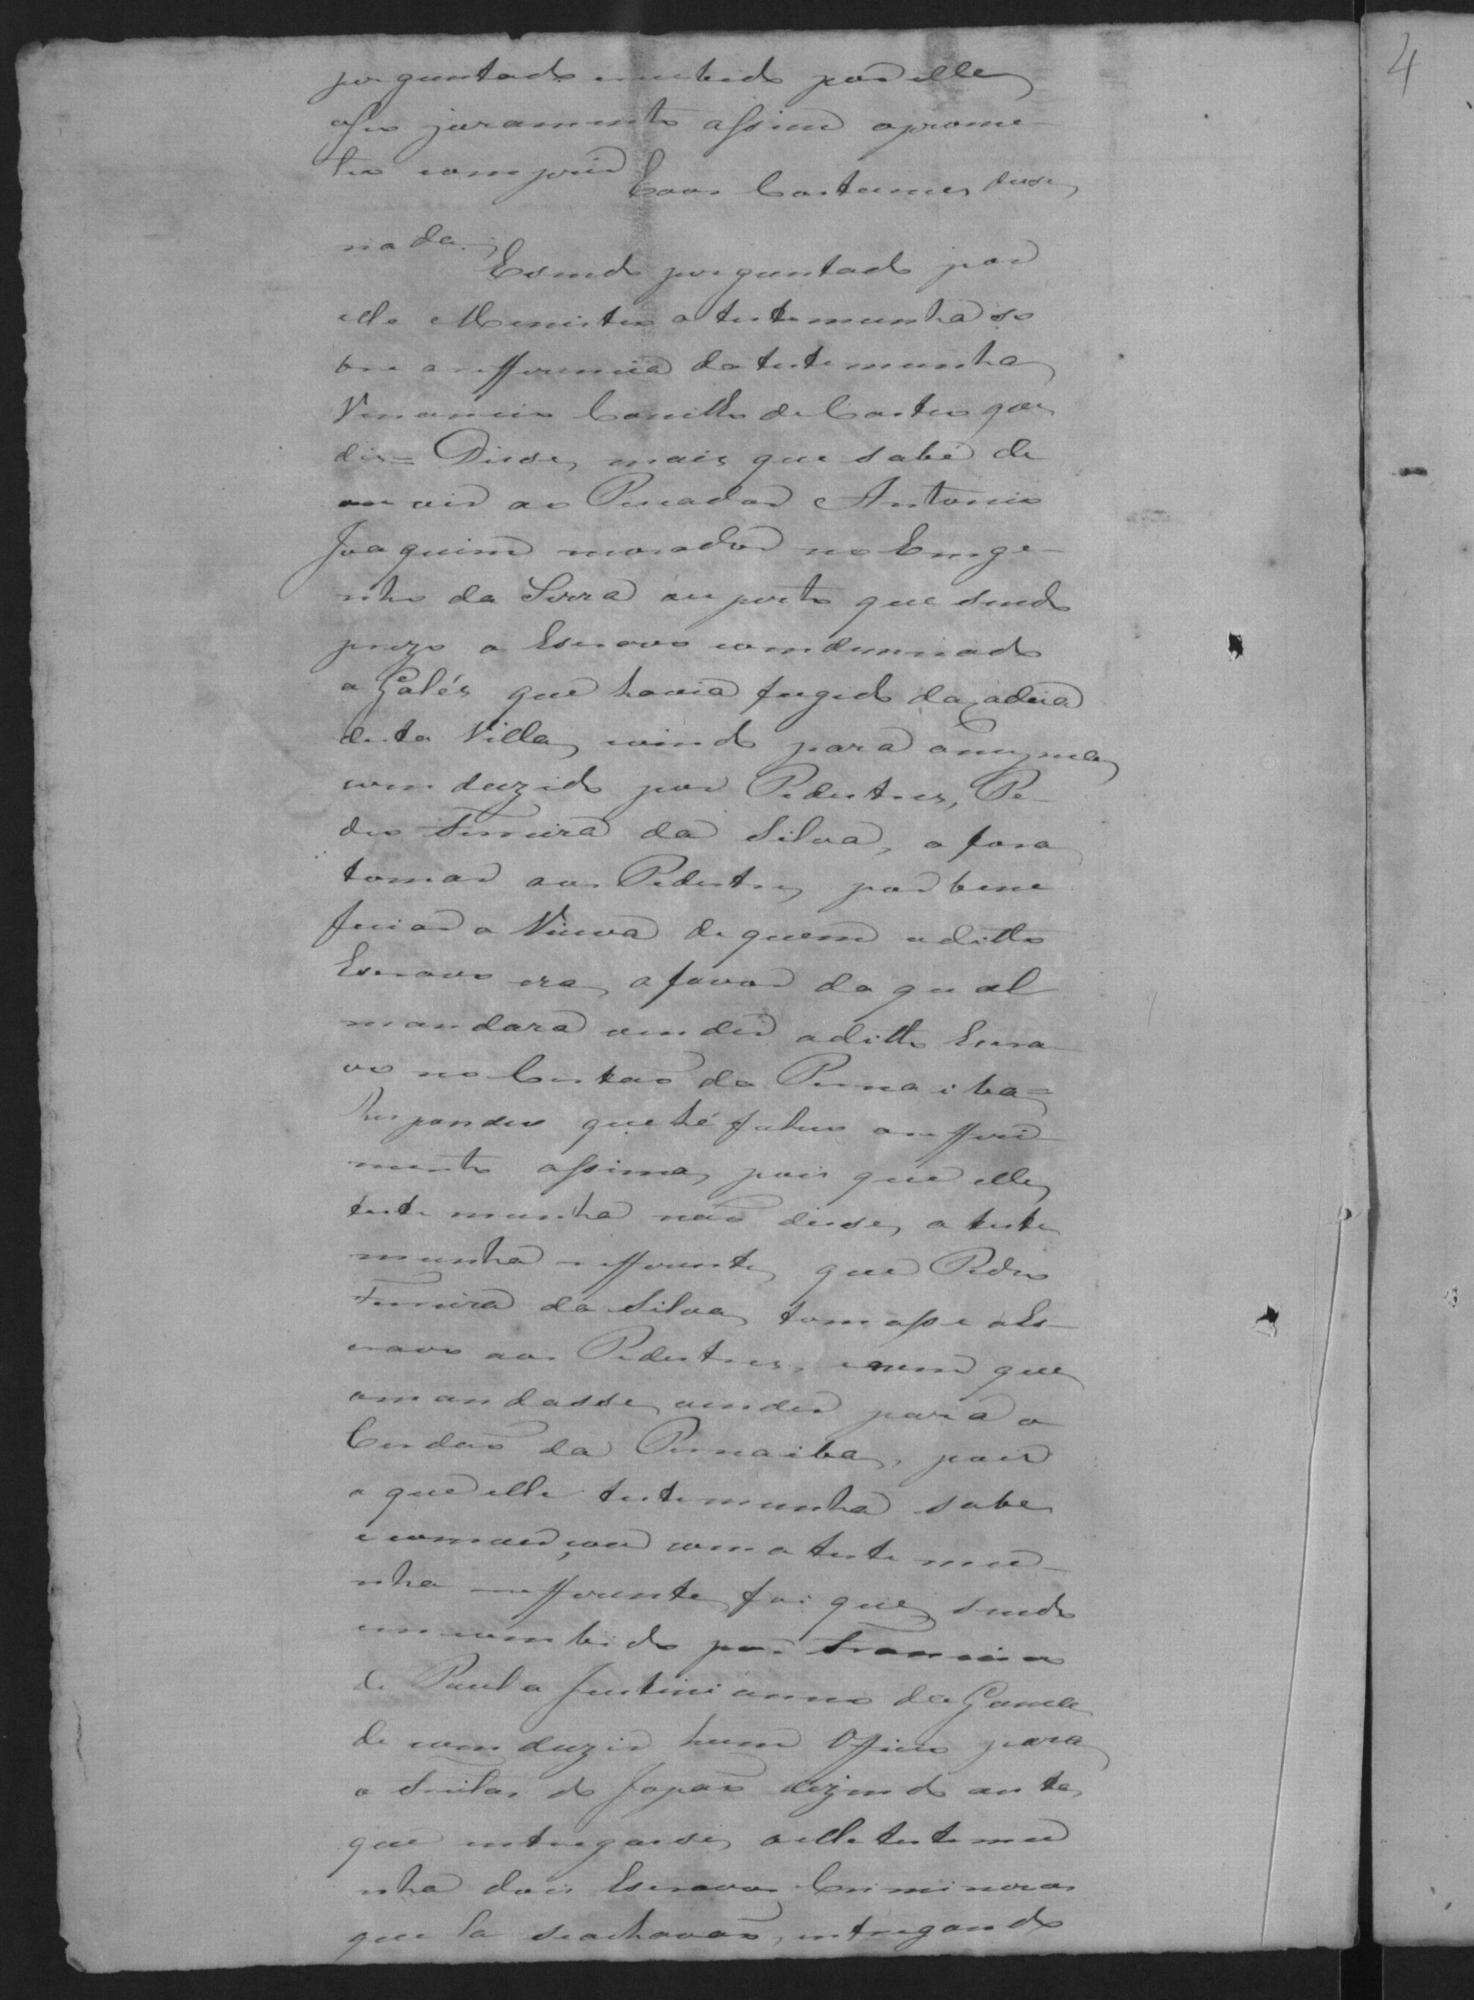 perguntado e recebido por elle
o seo juramento assim o prome-
teo comprir Eaos Costumes disse
nada.
Esendo perguntado por
elle Menistro a testemunha so
bre a refferencia da testemunha
Venancio Camillo de Castro que
diz = Disse, mais que sabe de
ouvir ao Pescador Antonio
Joaquim morador no Enge-
nho da Serra
que sendo
prezo o Escravo comdemnado
a Galés que havia fugido da Cadeia
desta Villa, vindo para a mesma
comduzido por Pedestres, Pe-
dro Ferreira da Silva, o fora
tomar aos Pedestres, por bene
ficiar a Viuva de quem o ditto
Escravo era, a favor da qual
mandara vender o ditto Escra-
vo no Certão da Parnaiba =
Respondeo que hé falso o reffiri-
mento assima, pois que elle
testemunha não disse, a teste
munha refferente, que Pedro
Ferreira da Silva, tomasse o Es-
cravo aos Pedestres, e nem que
o mandasse vender para o
Certão da Parnaiba, pois
o que elle testemunha sabe
e comversou com a testemu-
nha refferente, foi que, sendo
emcumbido por Francisco
de Paula Justinianno da Gama
de comduzir hum Officio para
o
do Japão dizendo
que entregasse, a elle testemu
nha dois Escravos Criminosos
que la se achavão, entregando
4